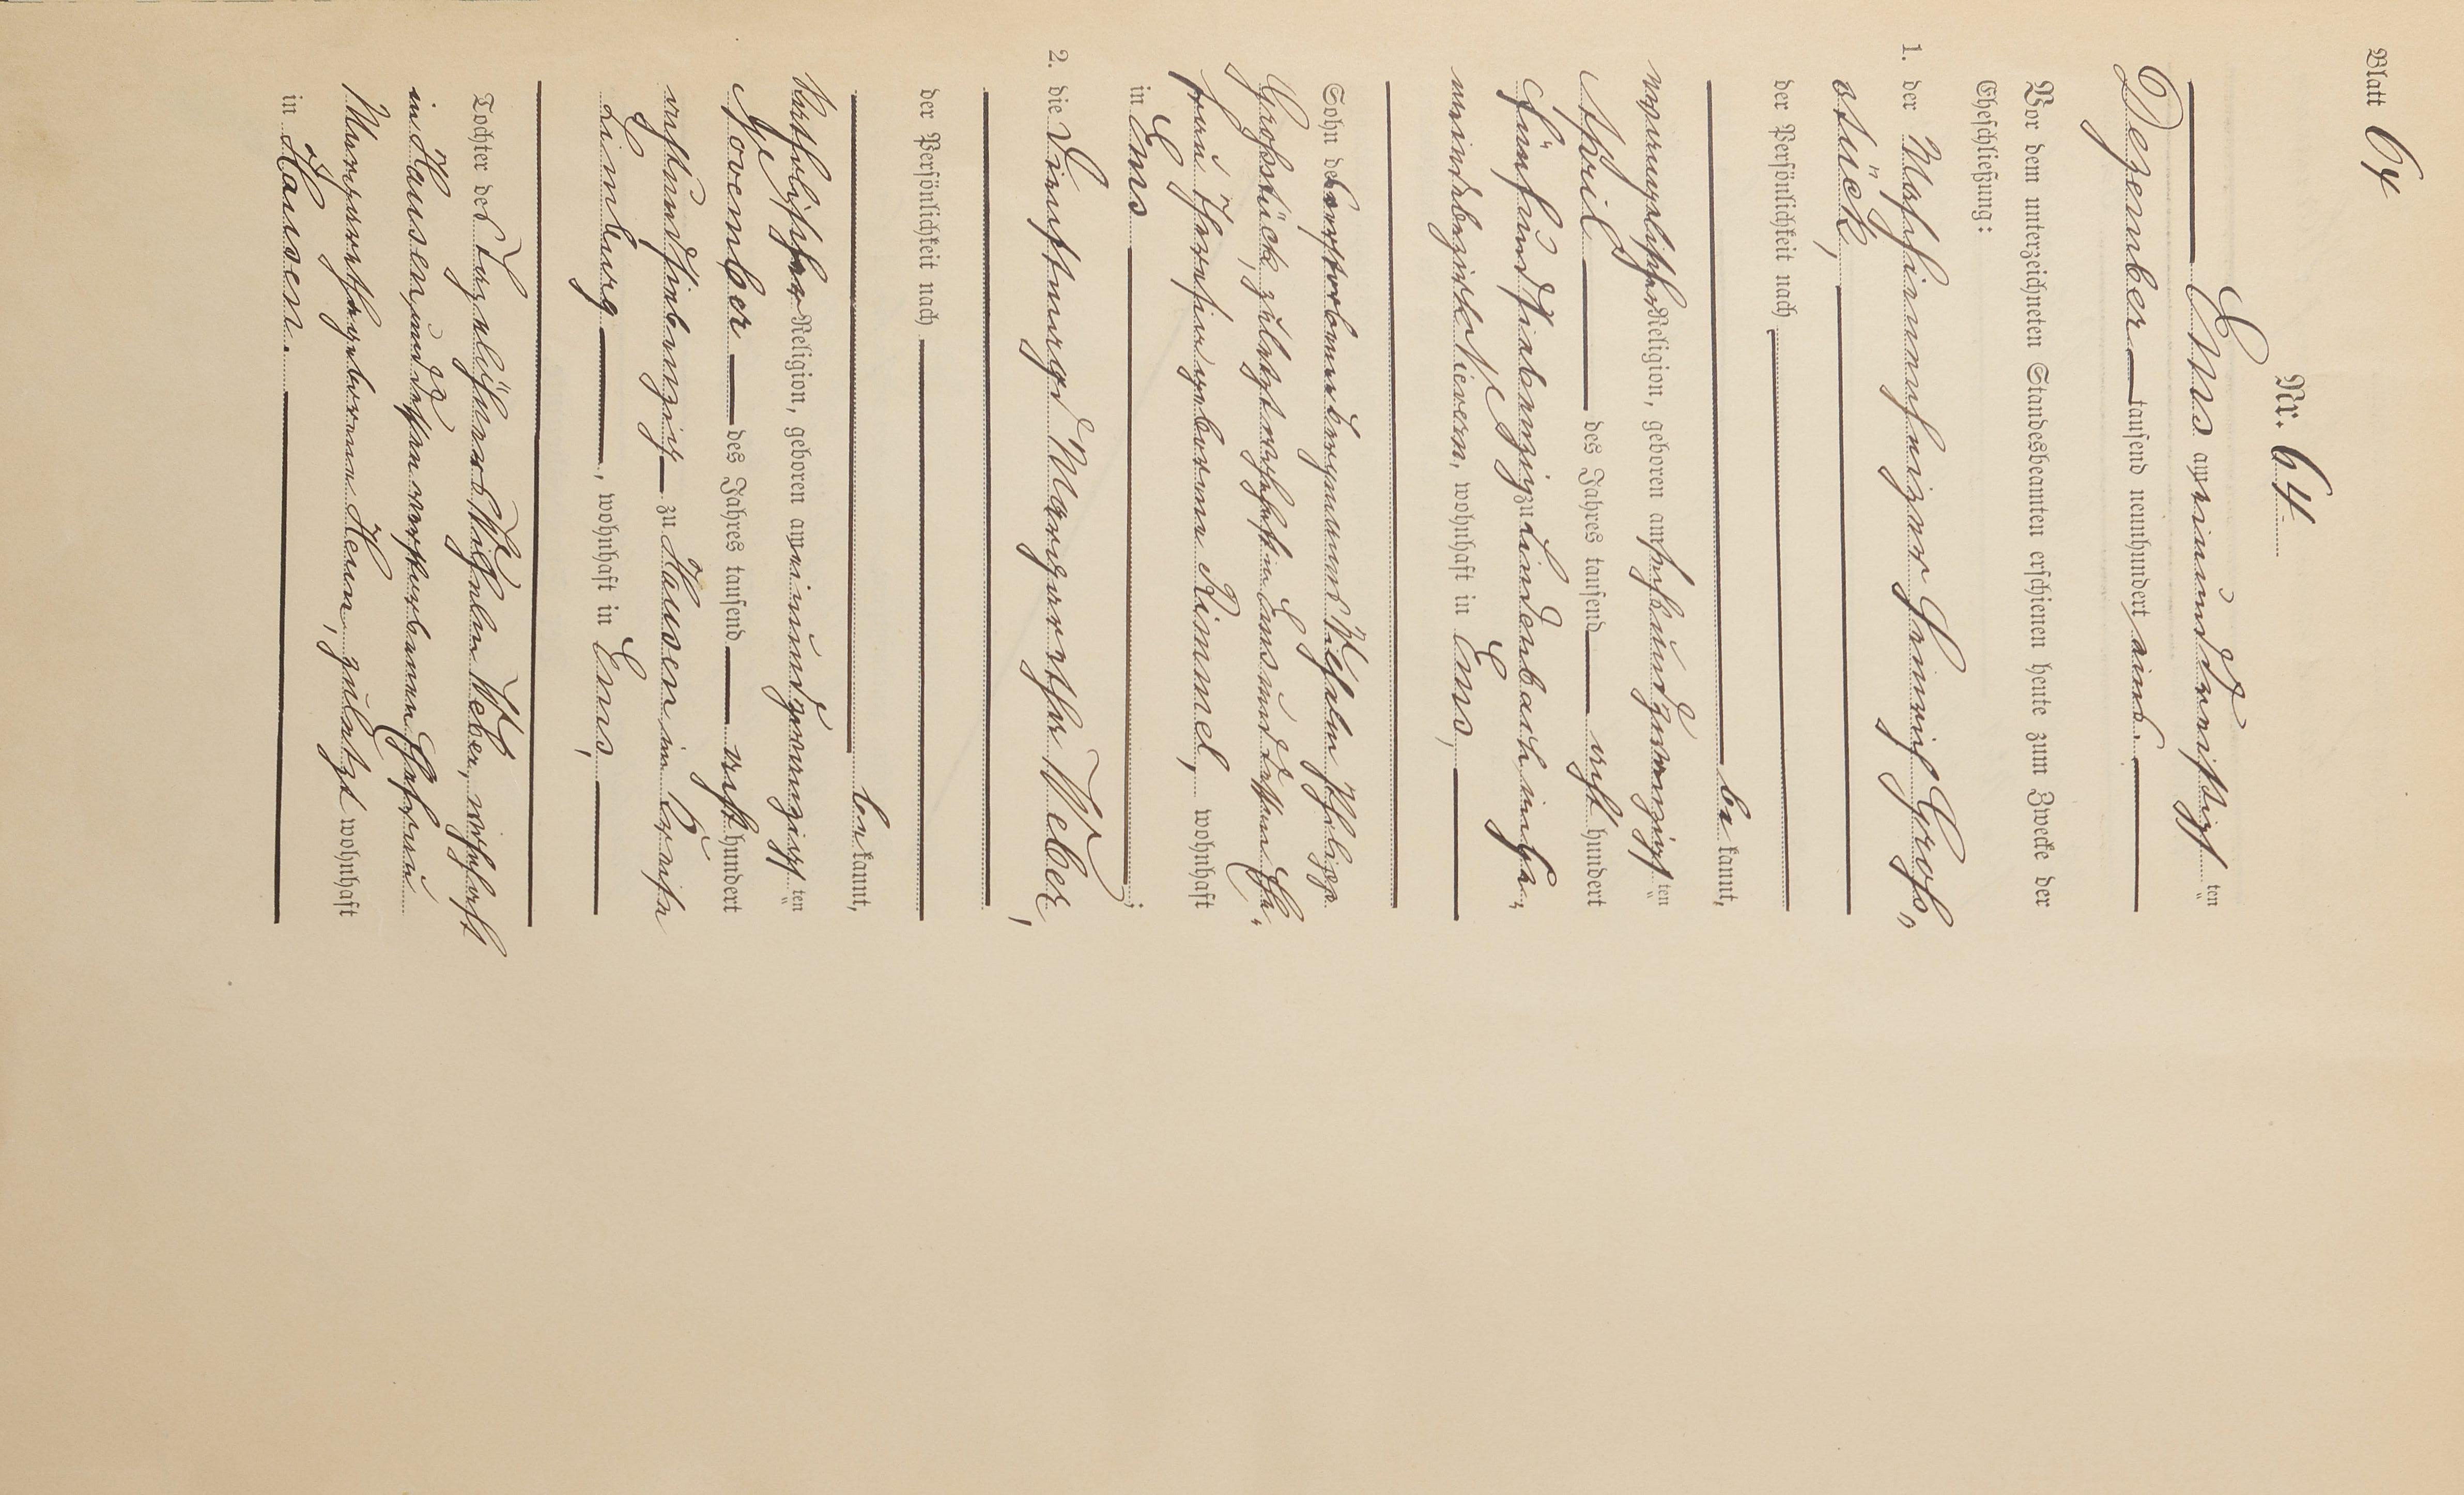 Blatt 64
Nr. 64
Ems am einunddreißigs ten
Dezember tausend neunhundert eins.
Vor dem unterzeichneten Standesbeamten erschienen heute zum Zwecke der
Eheschließung:
1. der Maschinenheizer Heinrich Groß„
stück,
der Persönlichkeit nach
be kannt,
evangelischer Religion, geboren am achtundzwanzigs ten
April des Jahres tausend acht hundert
fünfundsiebenzig zu Lindenbach im Ge„
meindebezirk Nievern, wohnhaft in Ems,
Sohn des verstorbenen Bergmanns Wilhelm Philipp
Großstück, zuletzt wohnhaft in Ems und dessen Ehe„
frau Josephine geborene Kimmel, wohnhaft
in Ems ;
2. die Dienstmagd Margarethe Weber,
der Persönlichkeit nach
be kannt,
katholischer Religion, geboren am einundzwanzigs ten
November des Jahres tausend acht hundert
achtundsiebenzig zu Hausen im Kreise
Limburg, wohnhaft in Ems,
Tochter des Tagelöhners Wilhelm Weber, wohnhaft
in Hausen, und dessen verstorbenen Ehefrau
Margarethe geborenen Henn, zuletzt wohnhaft
in Hausen.